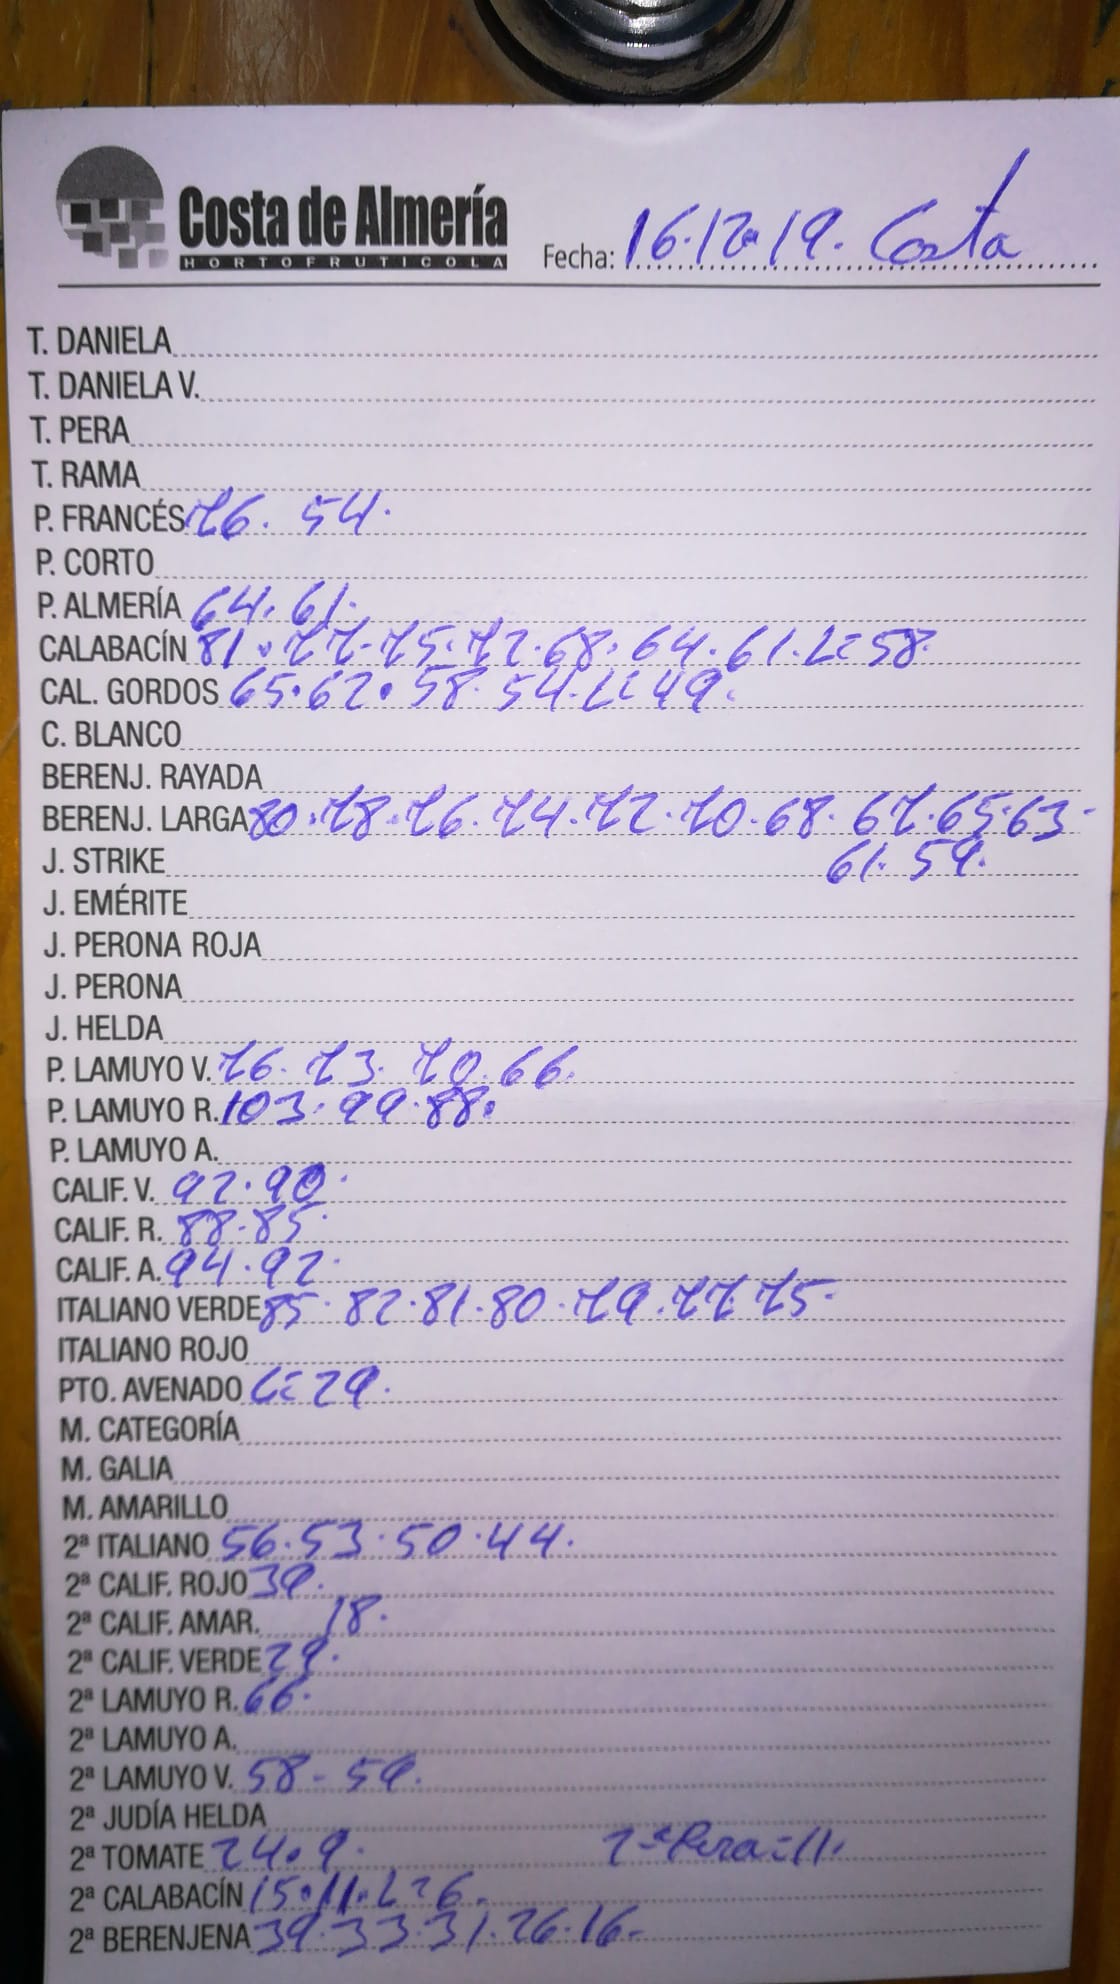 Costa de Almería
HORTOFRUTICOLA
Fecha: 16.12.19. Costa
T. DANIELA
T. DANIELA V.
T. PERA
T. RAMA
P. FRANCÉS 76. 54.
P. CORTO
P. ALMERÍA 64. 61.
CALABACÍN 81. 77. 75. 72. 68. 64. 61. L= 58.
CAL. GORDOS 65. 62. 58. 54. L= 49.
C. BLANCO
BERENJ. RAYADA
BERENJ. LARGA 80. 78. 76. 74. 72. 70. 68. 67. 65. 63.
J. STRIKE 61. 59.
J. EMÉRITE
J. PERONA ROJA
J. PERONA
J. HELDA
P. LAMUYO V. 76. 73. 70. 66.
P. LAMUYO R. 103. 99. 88.
P. LAMUYO A.
CALIF. V. 92. 90.
CALIF. R. 88. 85.
CALIF. A. 94. 92.
ITALIANO VERDE 85. 82. 81. 80. 79. 77. 75.
ITALIANO ROJO
PTO. AVENADO L= 29.
M. CATEGORÍA
M. GALIA
M. AMARILLO
2ª ITALIANO 56. 53. 50. 44.
2ª CALIF. ROJO 39.
2ª CALIF. AMAR. 18.
2ª CALIF. VERDE 29.
2ª LAMUYO R. 66.
2ª LAMUYO A.
2ª LAMUYO V. 58 - 59.
2ª JUDÍA HELDA
2ª TOMATE 24. 9. 2ª Pera = 11.
2ª CALABACÍN 15. 11. L= 6.
2ª BERENJENA 39. 33. 31. 26. 16.